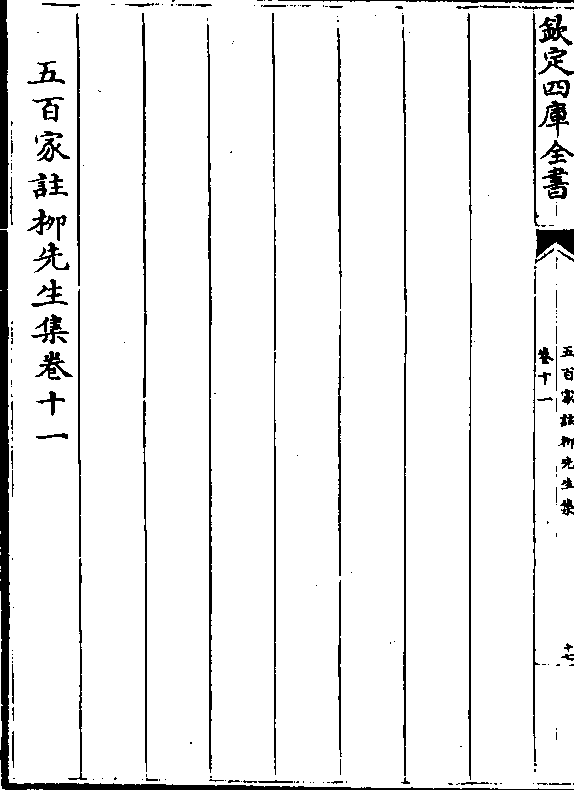 欽定四庫全書
五百家註柳先生集
卷十一
十七
五百家註柳先生集卷十一